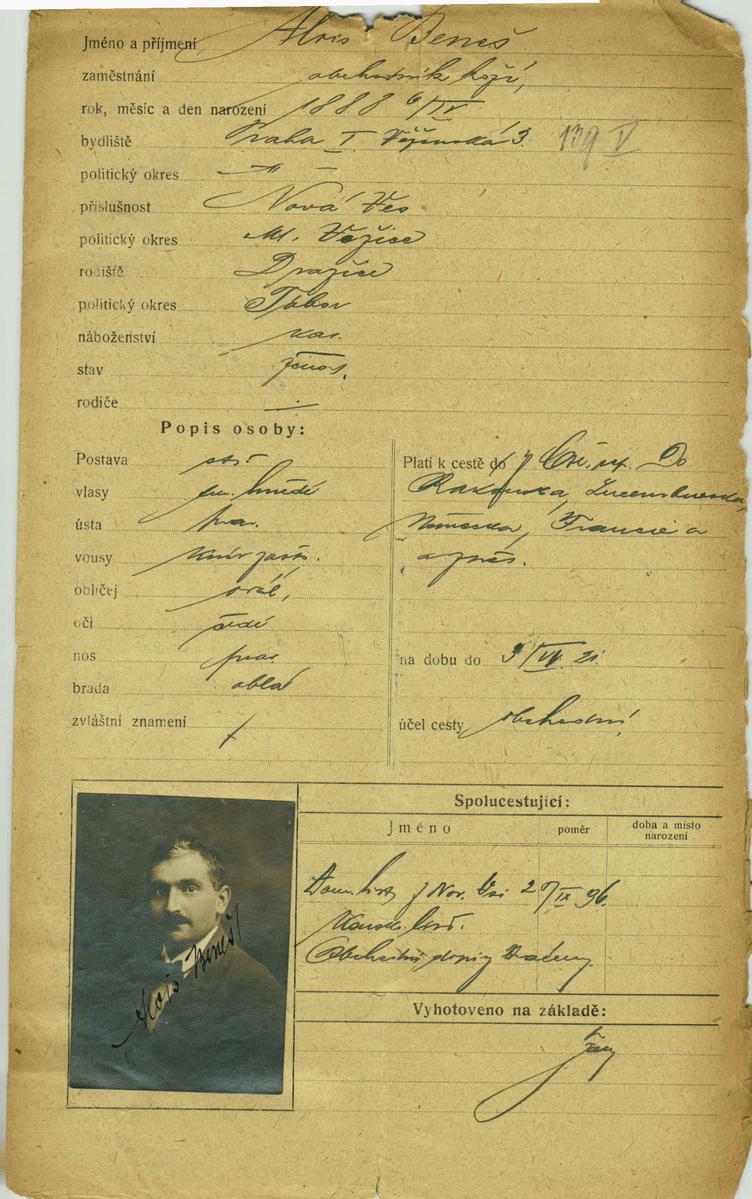 Jméno a příjmení Alois Beneš
zaměstnání obchodník koží,
rok, měsíc a den narození 1888 6/IV
bydliště Praha I. Vězeňská 3. 139 V
politický okres — " —
příslušnost Nová Ves
politický okres M. Vožice
rodiště Dražice
politický okres Tábor
náboženství
stav ženat.
rodiče
Popis osoby:
Postava stř
vlasy hnědé
ústa pra.
vousy knír
obličej ovál,
oči šedé
nos prav
brada oblá
zvláštní znamení /
Platí k cestě do Do
Rakouska, Lucemburska,
Německa, Francie a
a zpět.
na dobu do 21.
účel cesty obchodní,
Alois Beneš
Spolucestující:
jméno
poměr
doba a místo narození
Dom. list z Nov. Vsi 2 /IX 96.
Obchodní dopisy vráceny.
Vyhotoveno na základě: